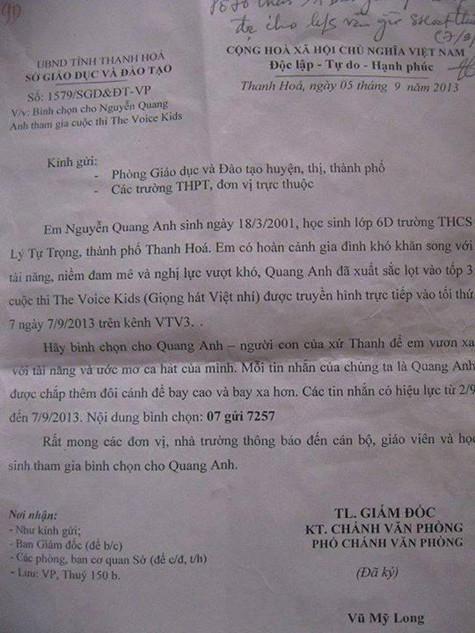 90
cho lớp
UBND TỈNH THANH HOÁ
SỞ GIÁO DỤC VÀ ĐÀO TẠO
Số: 1579/SGD&ĐT-VP
V/v: Bình chọn cho Nguyễn Quang
Anh tham gia cuộc thi The Voice Kids
CỘNG HOÀ XÃ HỘI CHỦ NGHĨA VIỆT NAM
Độc lập - Tự do - Hạnh phúc
Thanh Hoá, ngày 05 tháng 9 năm 2013
Kính gửi:
- Phòng Giáo dục và Đào tạo huyện, thị, thành phố
- Các trường THPT, đơn vị trực thuộc
Em Nguyễn Quang Anh sinh ngày 18/3/2001, học sinh lớp 6D trường THCS
Lý Tự Trọng, thành phố Thanh Hoá. Em có hoàn cảnh gia đình khó khăn song với
tài năng, niềm đam mê và nghị lực vượt khó, Quang Anh đã xuất sắc lọt vào tốp 3
cuộc thi The Voice Kids (Giọng hát Việt nhí) được truyền hình trực tiếp vào tối thứ
7 ngày 7/9/2013 trên kênh VTV3. .
Hãy bình chọn cho Quang Anh – người con của xứ Thanh để em vươn xa
với tài năng và ước mơ ca hát của mình. Mỗi tin nhắn của chúng ta là Quang Anh
được chắp thêm đôi cánh để bay cao và bay xa hơn. Các tin nhắn có hiệu lực từ 2/9
đến 7/9/2013. Nội dung bình chọn: 07 gửi 7257
Rất mong các đơn vị, nhà trường thông báo đến cán bộ, giáo viên và học
sinh tham gia bình chọn cho Quang Anh.
Nơi nhận:
- Như kính gửi;
- Ban Giám đốc (để b/c)
- Các phòng, ban cơ quan Sở (để c/đ, t/h)
- Lưu: VP, Thuý 150 b.
TL. GIÁM ĐỐC
KT. CHÁNH VĂN PHÒNG
PHÓ CHÁNH VĂN PHÒNG
(Đã ký)
Vũ Mỹ Long